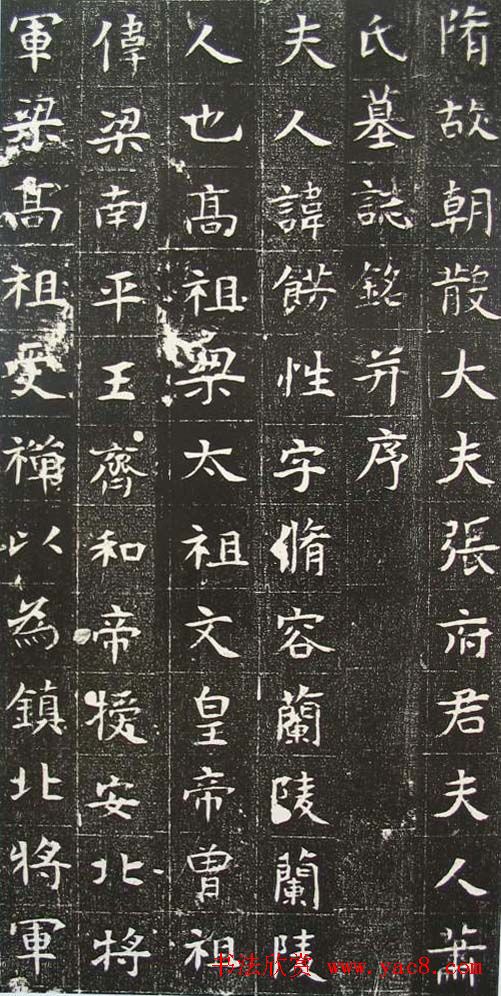 隋故朝散大夫張府君夫人蕭
氏墓誌銘并序
夫人諱餝性字脩容蘭陵蘭陵
人也髙祖梁太祖文皇帝曾祖
偉梁南平王齊和帝授安北將
軍梁髙祖受禪以為鎮北將軍
书法欣赏 www.yac8.com